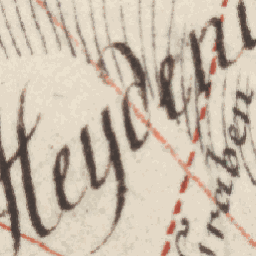 Heyden
Graben